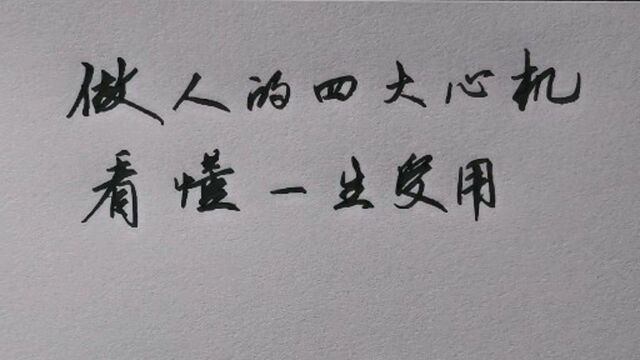 做人的四大心机
看懂一生受用